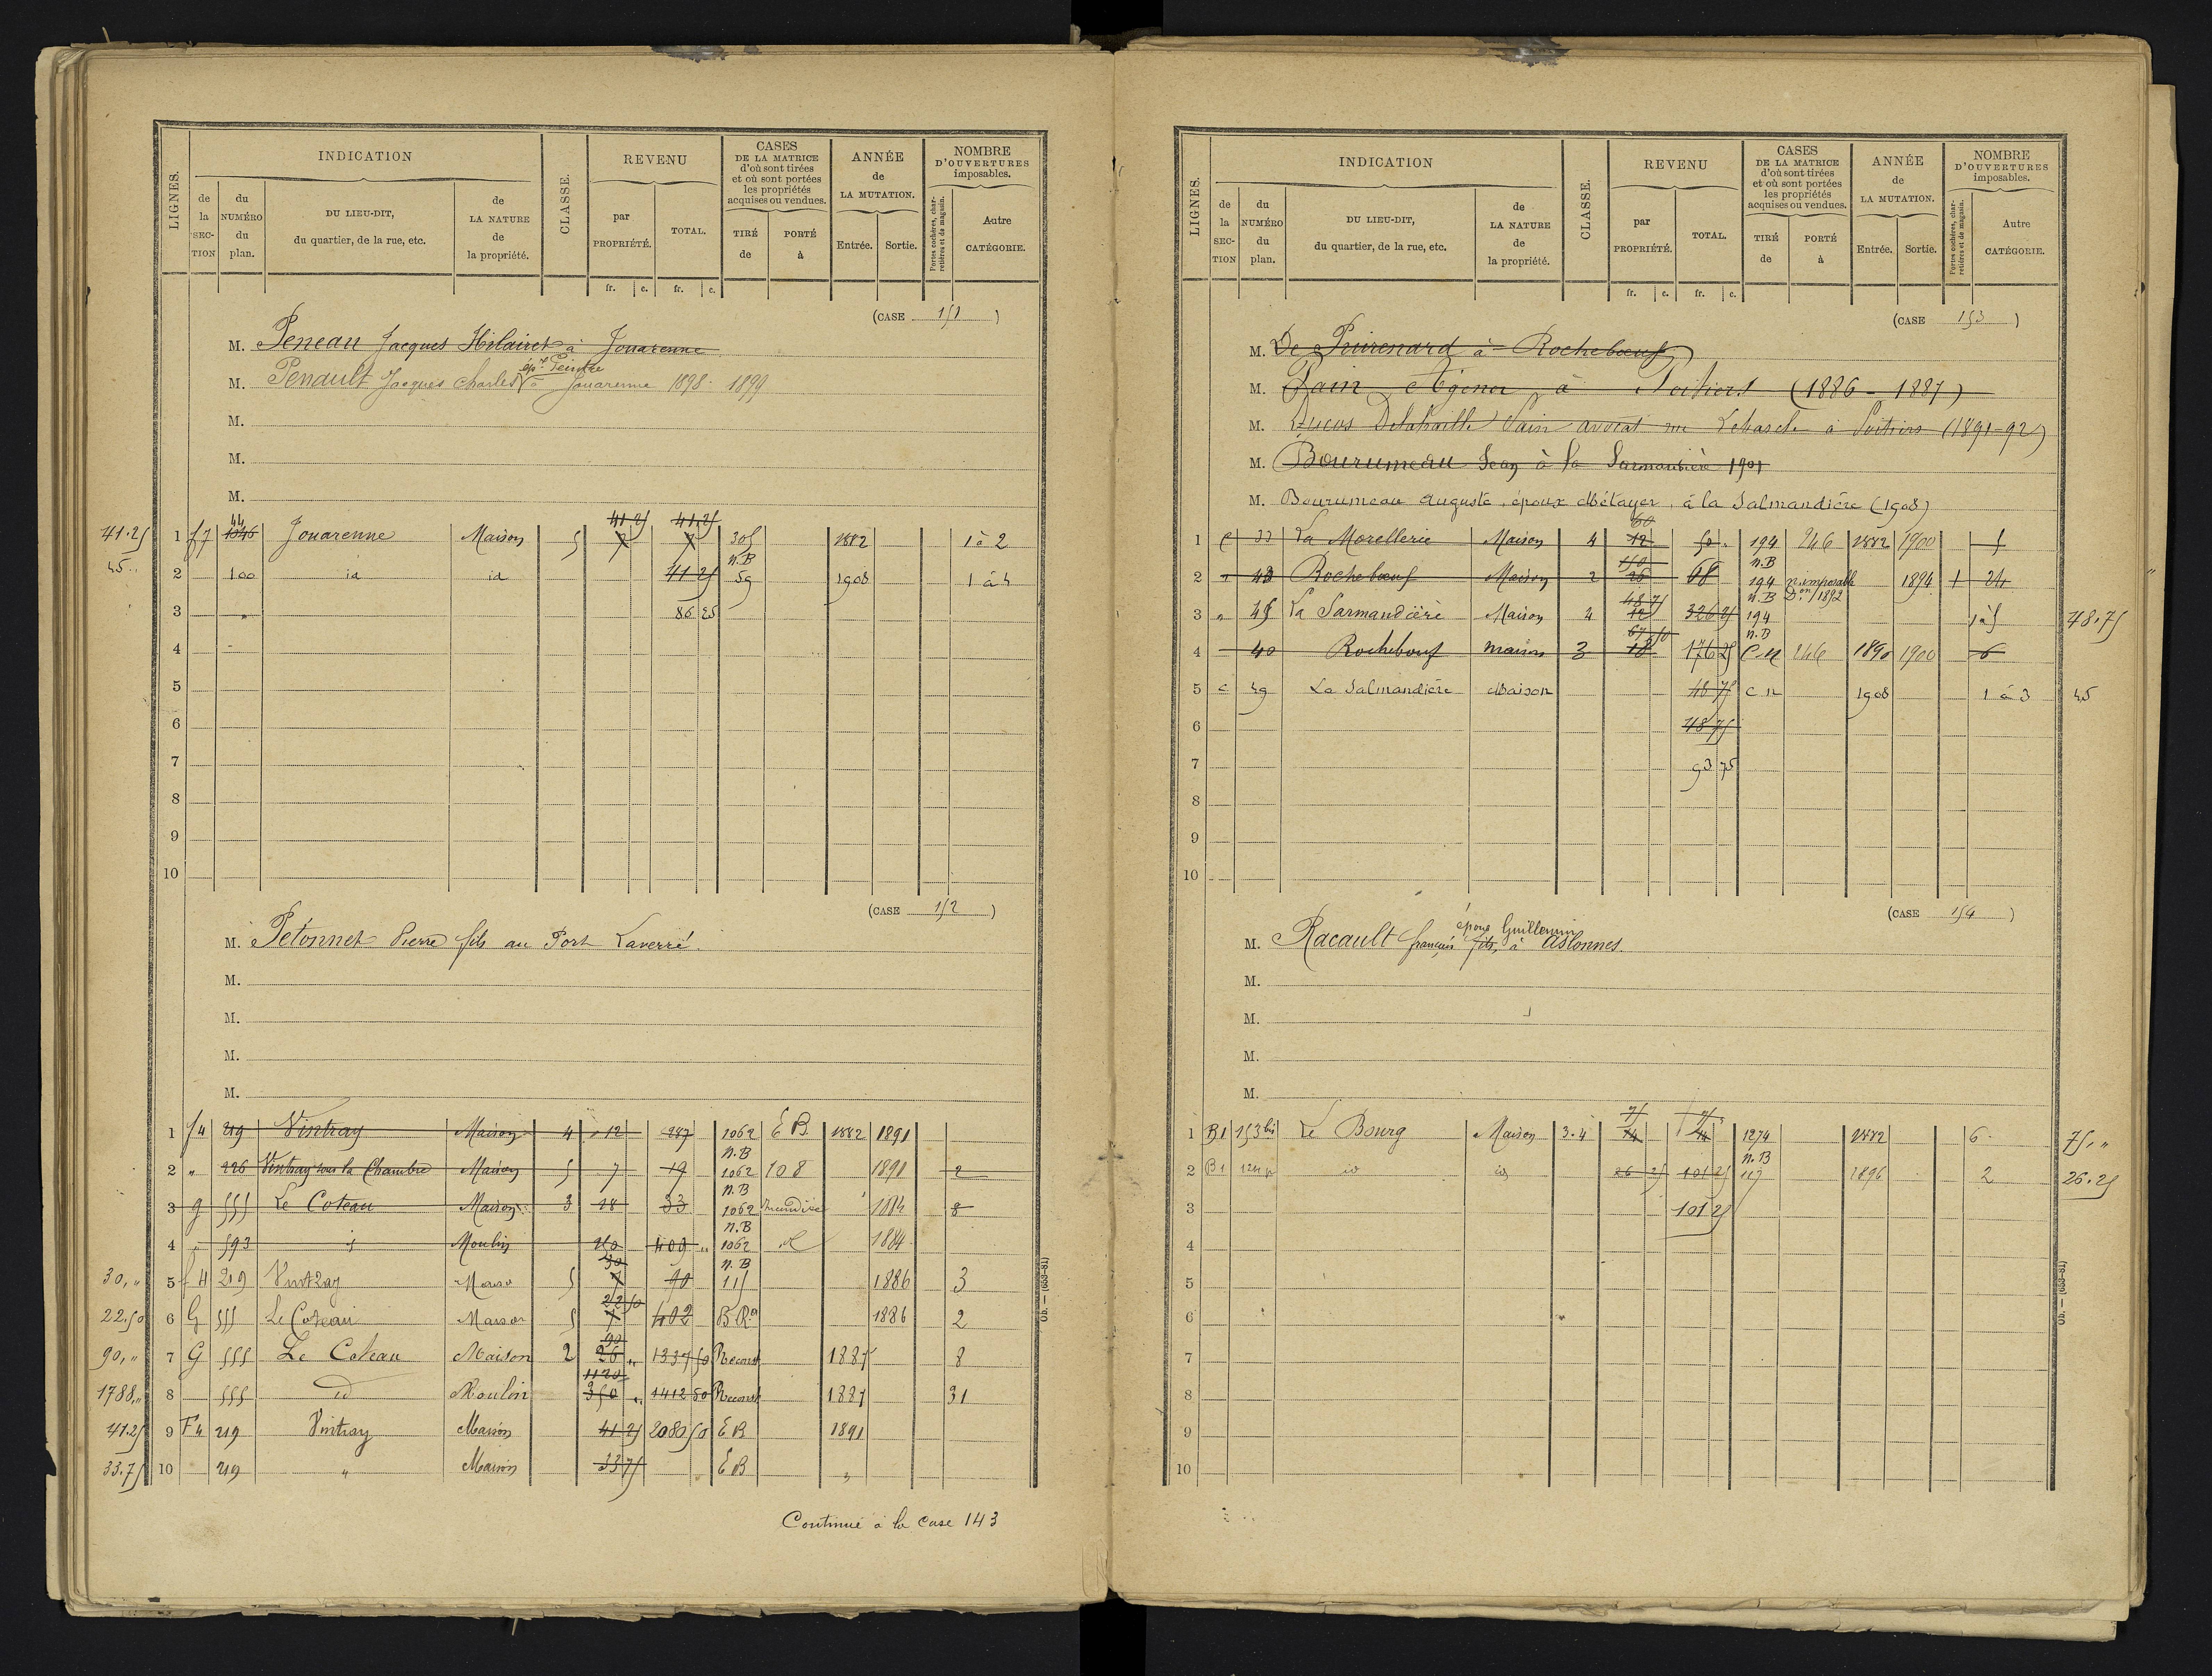 LIGNES.
INDICATION
de la SECTION
du NUMÉRO du plan.
DU LIEU-DIT, du quartier, de la rue, etc.
de LA NATURE de la propriété.
CLASSE.
REVENU
par PROPRIÉTÉ.
TOTAL.
fr. c. fr. c.
CASES DE LA MATRICE d'où sont tirées et où sont portées les propriétés acquises ou vendues.
TIRÉ de
PORTÉ à
ANNÉE de LA MUTATION.
Entrée. Sortie.
NOMBRE D'OUVERTURES imposables.
Portes cochères, charretières et de magasin.
Autre CATÉGORIE.
(CASE 151)
M. Peneau Jacques Hilaire à Jouarenne
ép.x Peintre
M. Penault Jacques Charles à Jouarenne 1898. 1899
M.
M.
M.
44 41 25 41.25
41.25 1 f7 1046 Jouarenne Maison 5 7 7 305 1882 1 à 2
n.B
45.. 2 100 id id 41 25 59 1908 1 à 4
3 86 25
4
5
6
7
8
9
10
(CASE 152)
M. Pétonnet Pierre fils au Port Laverré.
M.
M.
M.
M.
1 f4 219 Vintray Maison 4 12 287 1062 E B 1882 1891
n.B
2 " 226 Vintray sous la Chambre Maison 5 7 19 1062 108 1891 2
n.B
3 g 555 Le Coteau Maison 3 18 33 1062 Incendiée 1884 8
n.B
4 " 593 Moulin 403 " 1062 1884
30 n.B
30," 5 f4 219 Vintray Maison 5 7 115 1886 3
22 50
22.50 6 G 555 Le Coteau Maison 5 7 402 1886 2
90
90," 7 G 555 Le Coteau Maison 2 26 " 1337 50 Reconst 1887 8
1120
1788," 8 555 id Moulin 350 " 1412 50 Reconst 1887 31
41.25 9 F4 219 Vintray Maison 41 25 2080 50 E B 1891
33.75 10 219 " Maison 33 75 E B "
Continué à la Case 143
Ob. — (653-81)
LIGNES.
INDICATION
de la SECTION
du NUMÉRO du plan.
DU LIEU-DIT, du quartier, de la rue, etc.
de LA NATURE de la propriété.
CLASSE.
REVENU
par PROPRIÉTÉ.
TOTAL.
fr. c. fr. c.
CASES DE LA MATRICE d'où sont tirées et où sont portées les propriétés acquises ou vendues.
TIRÉ de
PORTÉ à
ANNÉE de LA MUTATION.
Entrée. Sortie.
NOMBRE D'OUVERTURES imposables.
Portes cochères, charretières et de magasin.
Autre CATÉGORIE.
(CASE 153)
M. De Puirenard à Rochebœuf
M. Pain Agenor à Poitiers (1886 - 1887)
M. Pain avocat rue à Poitiers (1891-92)
M. Bourumeau Jean à la Sarmandière 1901
M. Bourumeau Auguste, époux Métayer, à la Salmandière (1908)
60
1 c 33 La Morellerie Maison 4 12 50 . 194 246 1882 1900 5
150 n.B
2 " 43 Rochebœuf Maison 2 26 68 194 n. imposable 1894 1 24
48 75 n.B Don 1892
3 " 45 La Sarmandière Maison 4 12 326 25 194 1 à 5 48.75
67 50 n.B
4 40 Rochebœuf maison 3 18 176 25 C n 246 1890 1900 6
5 c 49 La Salmandière Maison 48 75 C n 1908 1 à 3 45
6 48 75
7 93 75
8
9
10
(CASE 154)
époux Guillemin
M. Racault françois fils, à Aslonnes.
M.
M.
M.
M.
75 75
1 B1 153 bis Le Bourg Maison 3.4 14 14 1274 1882 6. 75,"
n.B
2 B1 124 p id id 26 25 101 25 117 1896 2 26.25
3 101 25
4
5
6
7
8
9
10
Ob. — (653-81)